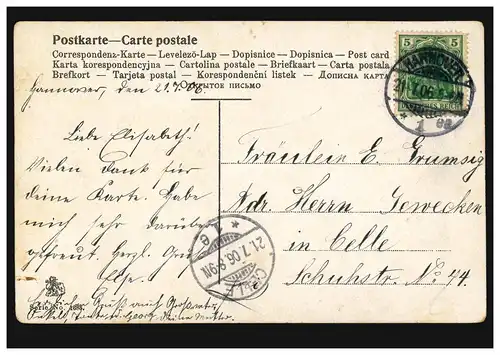 Postkarte—Carte postale
Correspondenz-Karte — Levelezö-Lap — Dopisnice — Dopisnica — Post card
Karta korespondencyjna — Cartolina postale — Briefkaart — Carta postala
Brefkort — Tarjeta postal — Korespondenční listek — Дописна карта
Открытое письмо
5 5
DEUTSCHES REICH
HANNOVER
21.7.06
* 1 *
Hannover, den 21.7.06.
Liebe Elisabeth!
Vielen Dank für
deine Karte. Habe
mich sehr darüber
gefreut. Herzl. Gruß
Else.
Fräulein E. Grumsig
Adr. Herrn Gewecken
in Celle
Schuhstr. No 74.
CELLE
21.7.06.8-9N
* 1 e
Serie No.
Gruß auch
Mutter.